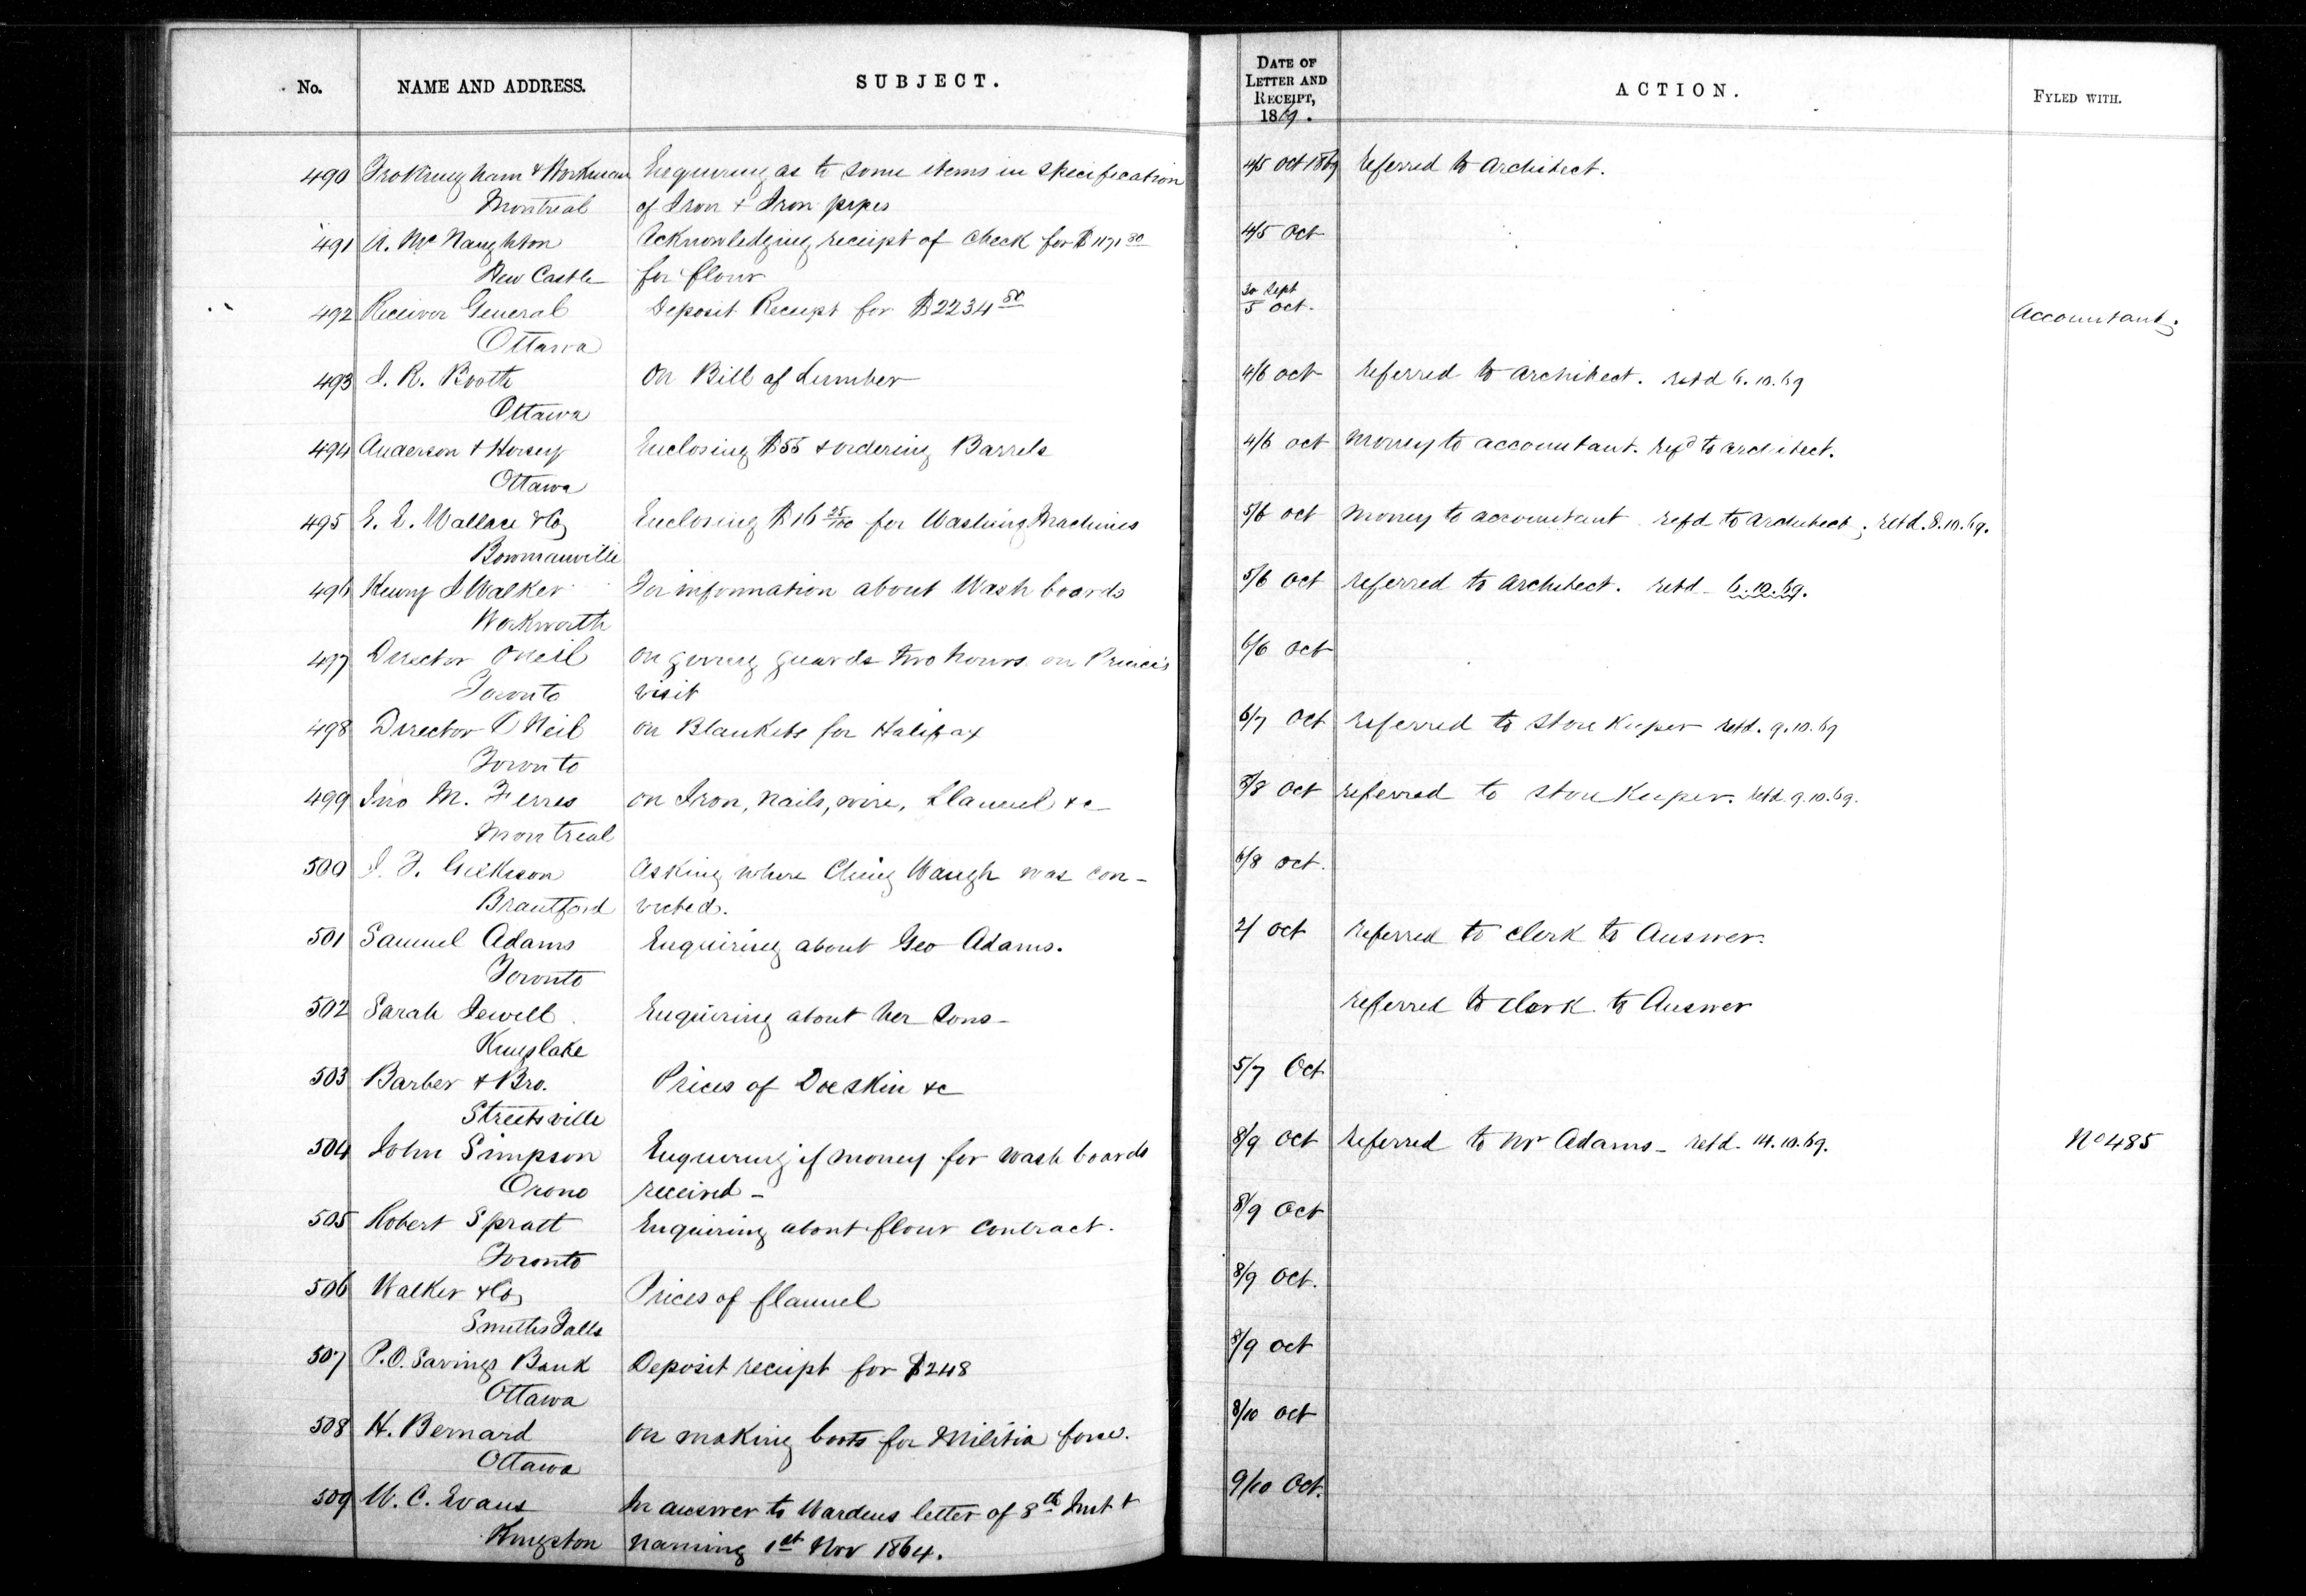 No.
NAME AND ADDRESS.
SUBJECT.
DATE OF
LETTER AND
RECEIPT,
1869.
ACTION.
FYLED WITH.
490 Frothingham & Workman Enquiring as to some items in specification 4/5 Oct 1869 referred to Architect.
Montreal of Iron & Iron pipes
491 A. McNaughton Acknowledging receipt of check for $1171 80 4/5 Oct
New Castle for flour
492 Receiver General Deposit Receipt for $2234 50 30 Sept
5 Oct. Accountant.
Ottawa
493 J. R. Booth On Bill of Lumber 4/6 Oct referred to Architect. retd 6.10.69
Ottawa
494 Anderson & Horsey Enclosing $55 & ordering Barrels 4/6 Oct Money to accountant. refd to architect.
Ottawa
495 Wallace & Co Enclosing $16 25/100 for Washing Machines 5/6 Oct Money to accountant refd to Architect; retd. 8.10.69.
Bowmanville
496 Henry J Walker For information about Wash boards 5/6 Oct referred to Architect. retd - 6.10.69.
Workworth
497 Director ONeil on giving guards two hours on Prince's 6/6 Oct
Toronto visit
498 Director O'Neil on Blankets for Halifax 6/7 Oct referred to Store Keeper retd. 9.10.69
Toronto
499 Jno M. Ferres on Iron, nails, wire, flannel &c 8/8 Oct referred to Store Keeper. retd. 9.10.69.
Montreal
500 J. T. Gilkison Asking where Ching Waugh was con- 6/8 Oct.
Brantford victed.
501 Samuel Adams Enquiring about Geo Adams. 2/ Oct referred to clerk to Answer.
Toronto
502 Sarah Jewell Enquiring about her sons - referred to clerk to Answer
Kinglake
503 Barber & Bro. Prices of Doeskin &c 5/7 Oct
Streetsville
504 John Simpson Enquiring if money for wash boards 8/9 Oct referred to Mr Adams - retd. 14.10.69. No 485
Orono received -
505 Robert Spratt Enquiring about flour contract. 8/9 Oct
Toronto
506 Walker & Co Prices of flannel 8/9 Oct.
Smiths Falls
507 P.O. Savings Bank Deposit receipt for $248 8/9 Oct
Ottawa
508 H. Bernard on making boots for Militia force. 8/10 Oct
Ottawa
509 W. C. Evans In answer to Wardens letter of 8th Inst & 9/10 Oct.
Kingston naming 1st Nov 1864.